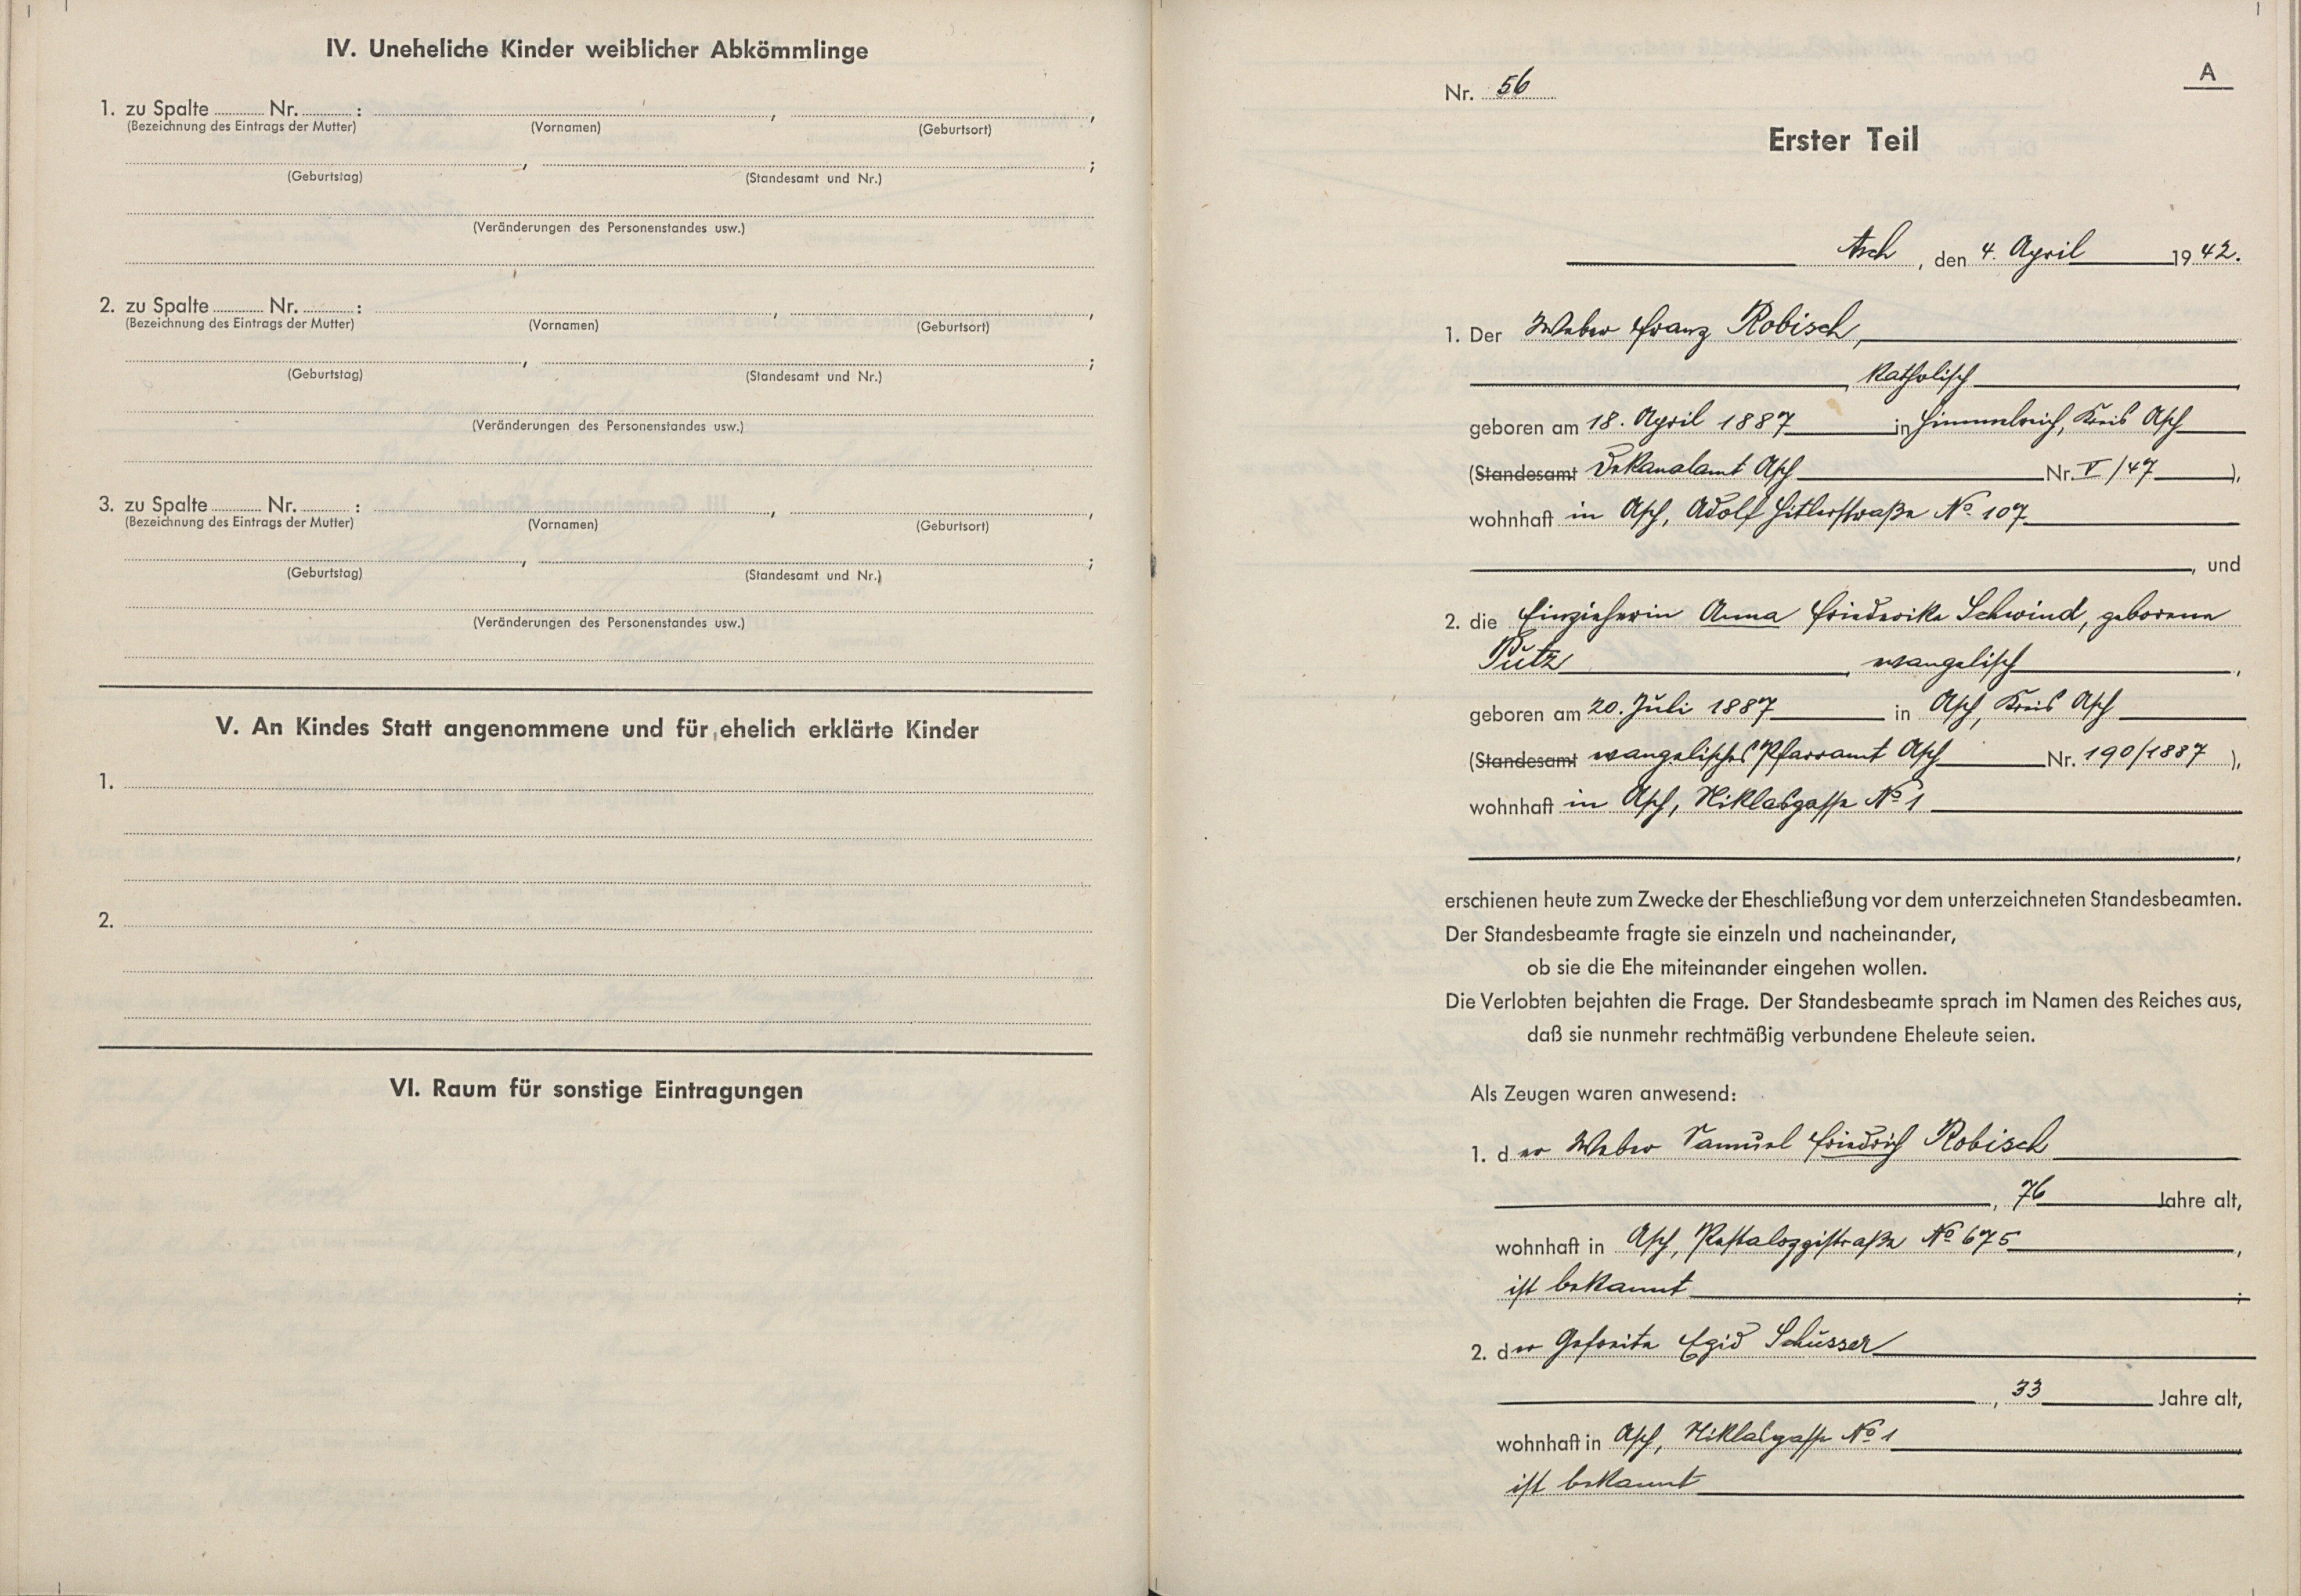 IV. Uneheliche Kinder weiblicher Abkömmlinge
1. zu Spalte ........ Nr. ........ : , ,
(Bezeichnung des Eintrags der Mutter) (Vornamen) (Geburtsort)
, ;
(Geburtstag) (Standesamt und Nr.)
(Veränderungen des Personenstandes usw.)
2. zu Spalte ........ Nr. ........ : , ,
(Bezeichnung des Eintrags der Mutter) (Vornamen) (Geburtsort)
, ;
(Geburtstag) (Standesamt und Nr.)
(Veränderungen des Personenstandes usw.)
3. zu Spalte ........ Nr. ........ : , ,
(Bezeichnung des Eintrags der Mutter) (Vornamen) (Geburtsort)
, ;
(Geburtstag) (Standesamt und Nr.)
(Veränderungen des Personenstandes usw.)
V. An Kindes Statt angenommene und für ehelich erklärte Kinder
1.
2.
VI. Raum für sonstige Eintragungen
A
Nr. 56
Erster Teil
Asch, den 4. April 1942.
1. Der Weber Franz Robisch,
, katholisch
geboren am 18. April 1887 in Himmelreich, Kreis Asch
(Standesamt Dekanalamt Asch Nr. V/47),
wohnhaft in Asch, Adolf Hitlerstraße No 107
, und
2. die Einzieherin Anna Friederike Schwind, geborene
Putz, evangelisch,
geboren am 20. Juli 1887 in Asch, Kreis Asch
(Standesamt evangelisches Pfarramt Asch Nr. 190/1887),
wohnhaft in Asch, Niklasgasse No 1
,
erschienen heute zum Zwecke der Eheschließung vor dem unterzeichneten Standesbeamten.
Der Standesbeamte fragte sie einzeln und nacheinander,
ob sie die Ehe miteinander eingehen wollen.
Die Verlobten bejahten die Frage. Der Standesbeamte sprach im Namen des Reiches aus,
daß sie nunmehr rechtmäßig verbundene Eheleute seien.
Als Zeugen waren anwesend:
1. der Weber Samuel Friedrich Robisch
, 76 Jahre alt,
wohnhaft in Asch, Pestalozzistraße No 675,
ist bekannt;
2. der Gefreite Egid Schusser
, 33 Jahre alt,
wohnhaft in Asch, Niklasgasse No 1
ist bekannt